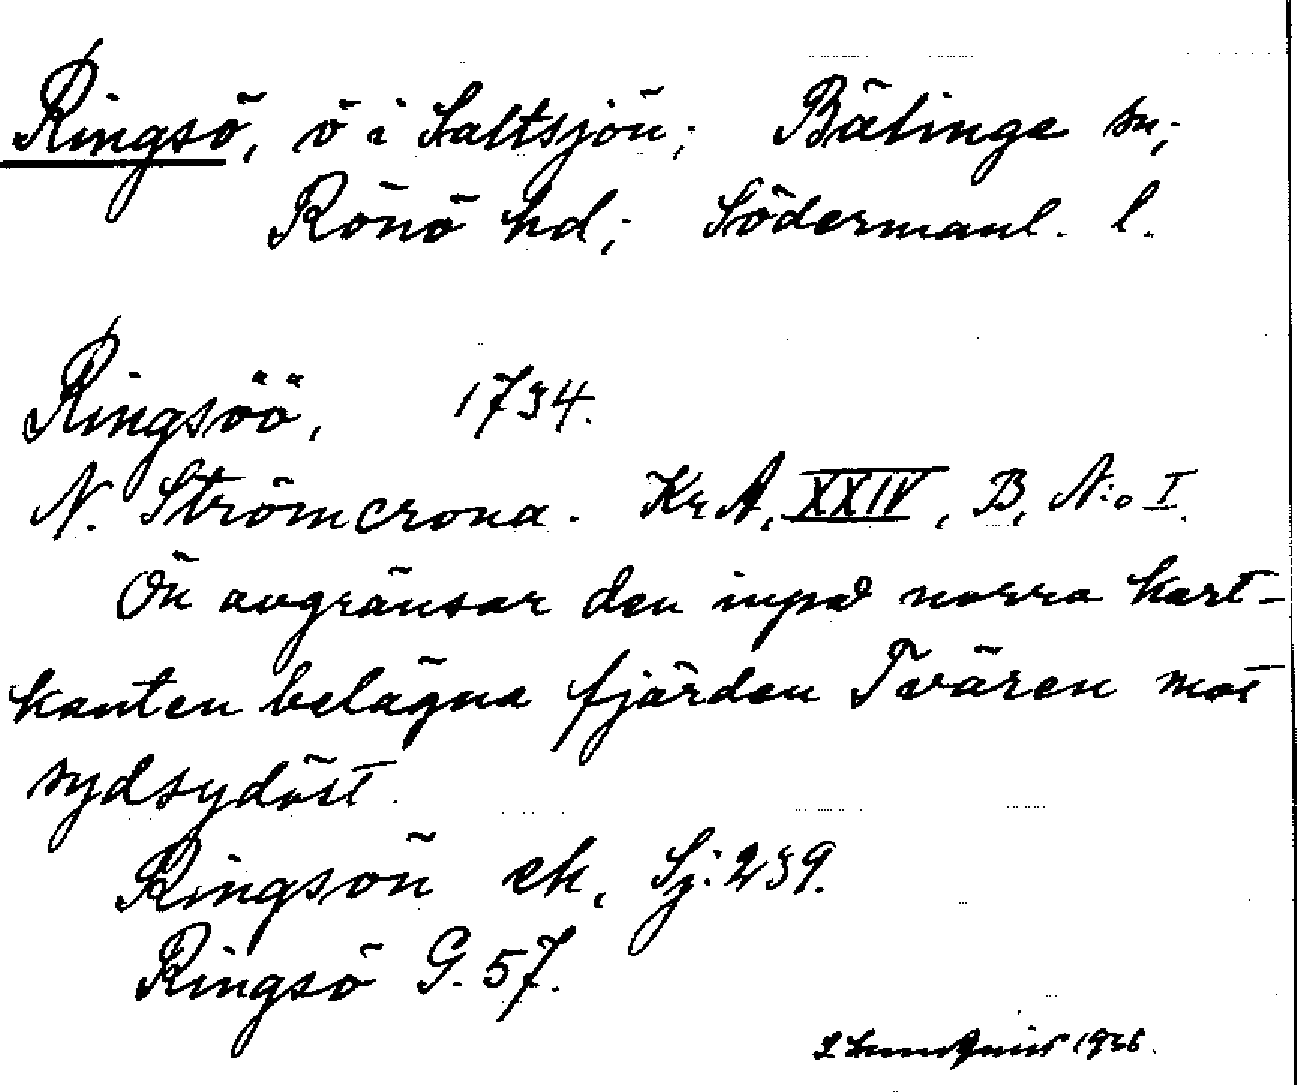 Ringsö, ö i Saltsjön; Bälinge sn;
Rönö hd; Södermanl. l.
Ringsöö, 1734.
N. Strömcrona. Kr.A, XXIV, B, N:o I.
Ön avgränsar den inpå norra kart-
kanten belägna fjärden Tvären mot
sydsydöst.
Ringsön ek, Sj: 239.
Ringsö G. 57.
1936.